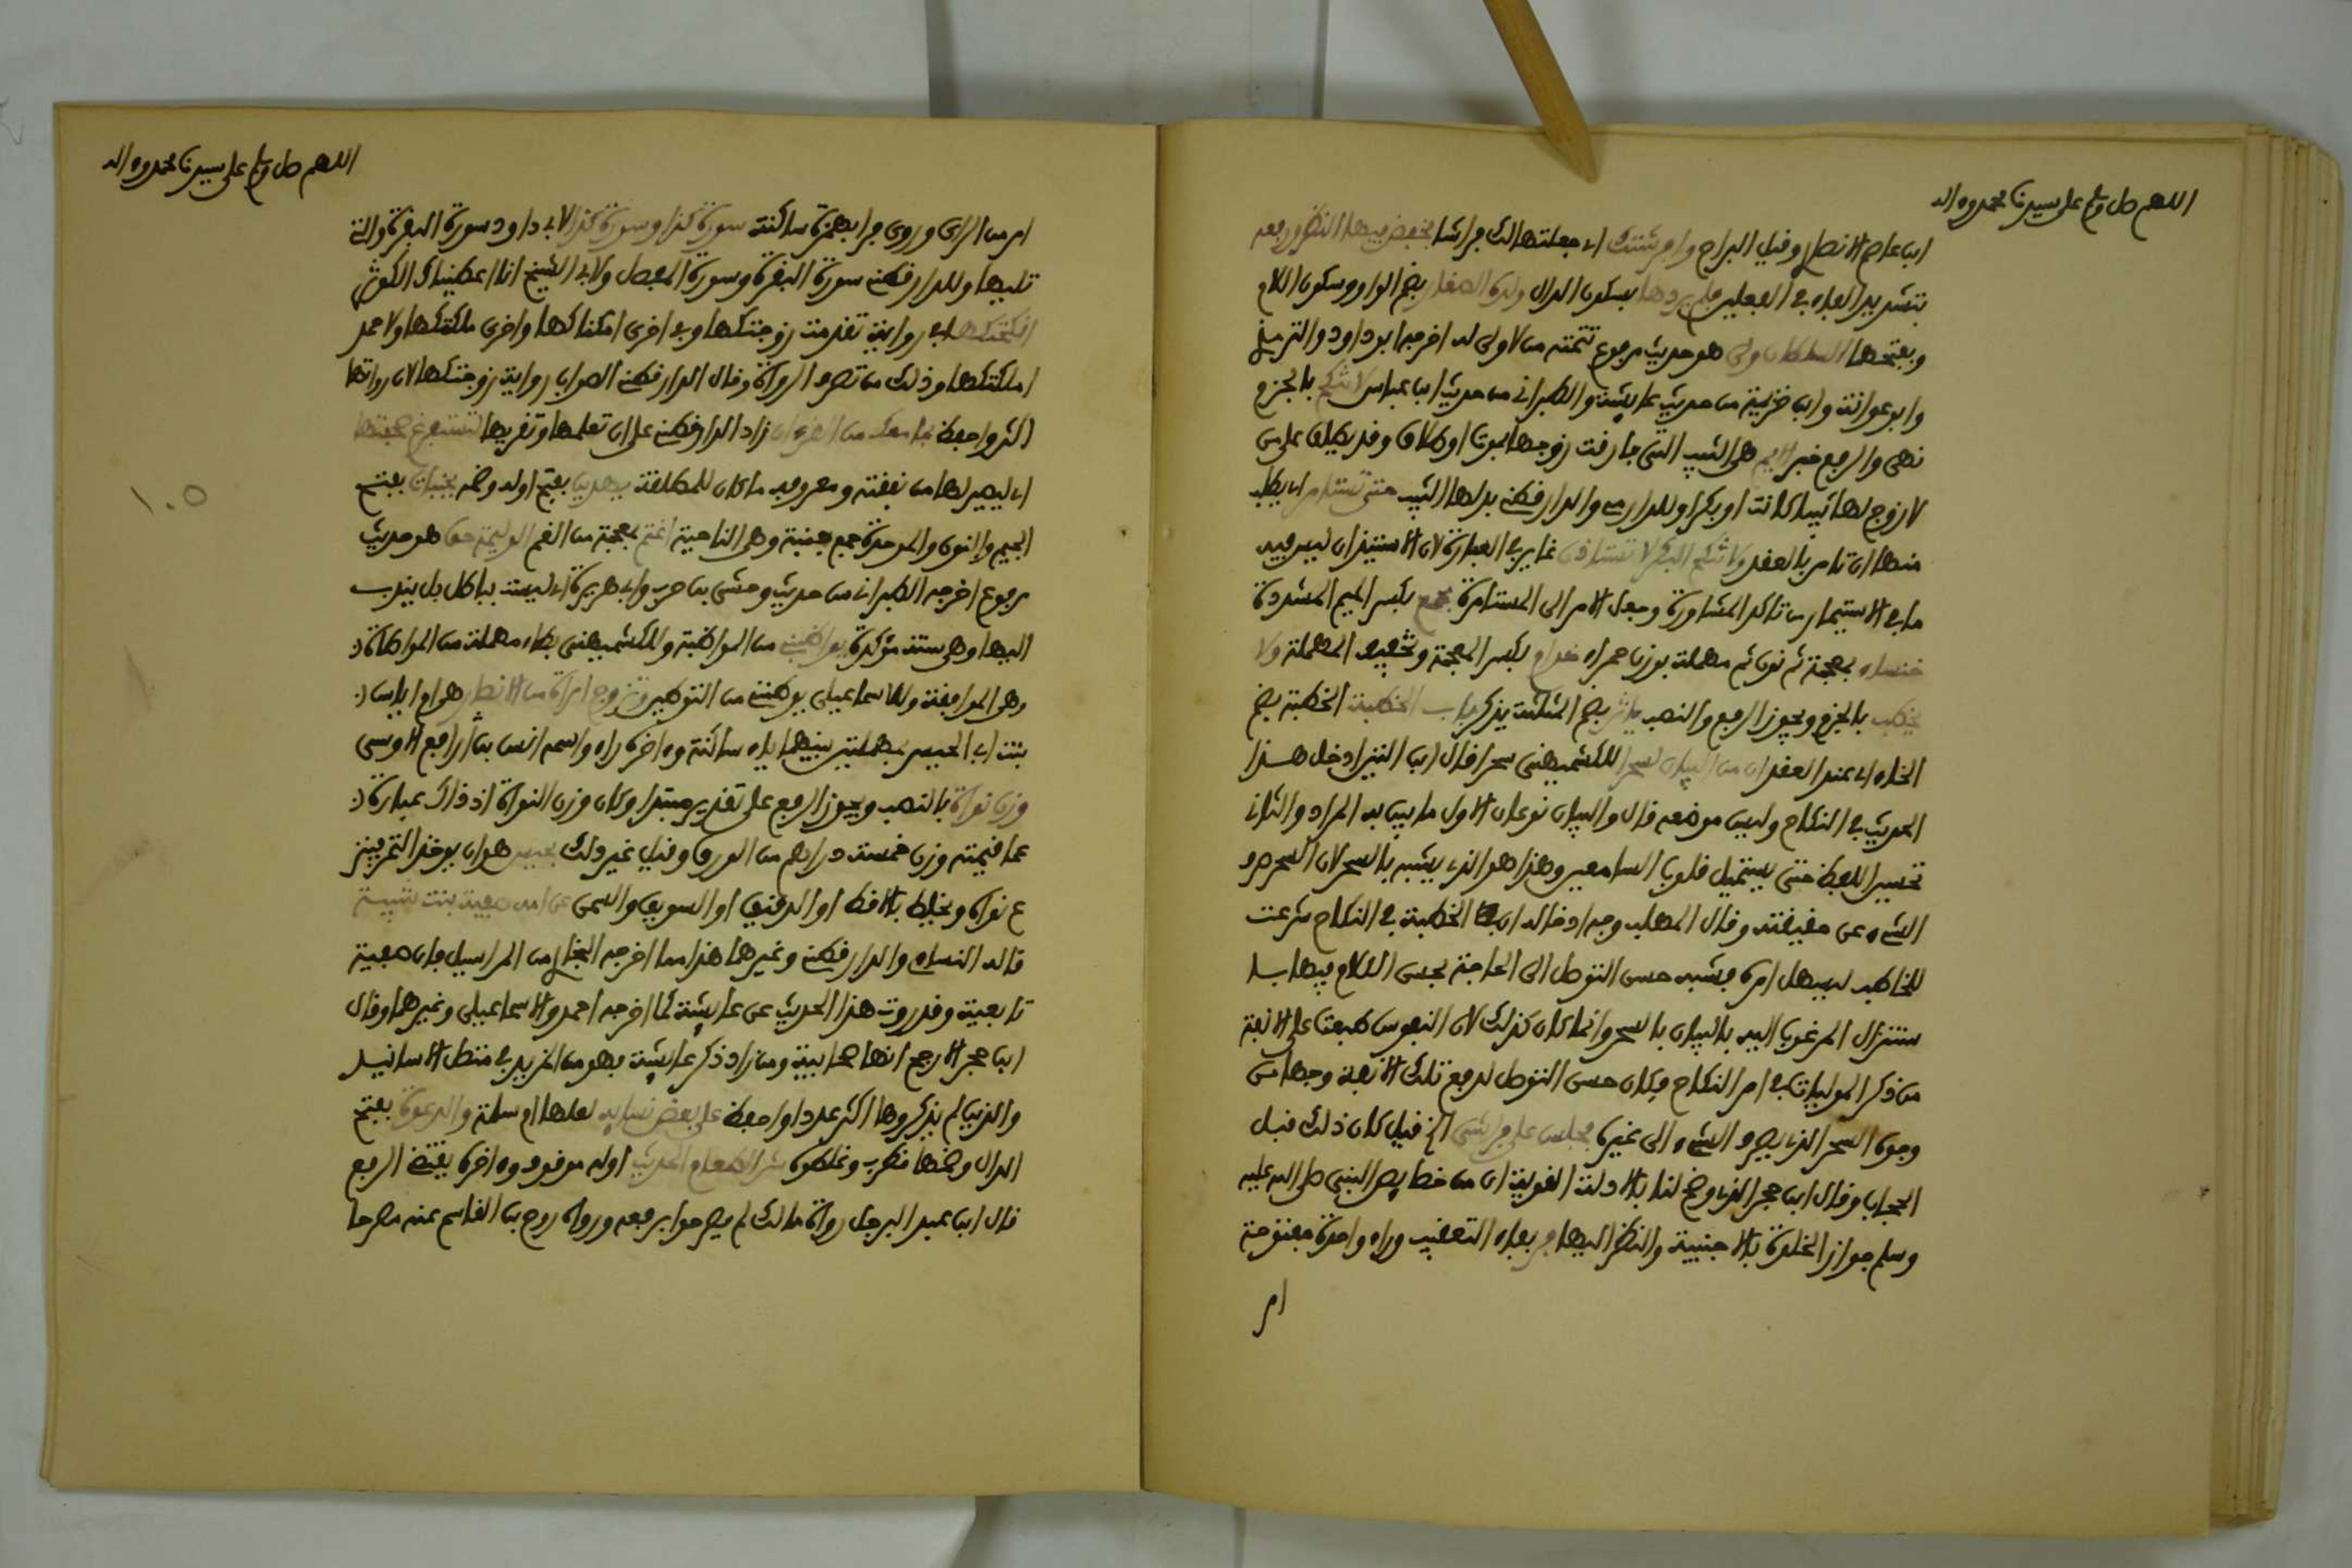 اللهم صل وسلم على سيدنا محمد وءاله
ابن عاصم الانصار وقيل البراح وافرشتك اي جعلتها لك فراشا فخفض فيها النظر ورفعه
بتشديد الفاء في الفعلين فلم يردها بسكون الدال ولدة الصغار بضم الواو وسكون اللام
وبفتحها السلطان ولي هو حديث مرفوع تتمته من لا ولي له اخرجه ابو داود والترمذي
وابو عوانة وابن خزيمة من حديث عايشة والطبراني من حديث ابن عباس لا تنكح بالجزم
نهي والرفع خبر الايم هي الثيب التي فارقت زوجها بموت او طلاق وقد يطلق على من
لا زوج لها ثيبا كانت او بكرا وللدارمي والدارقطني بدلها الثيب حتى تستامر اي يطلب
منها ان تامر بالعقد ولا تنكح البكر لا تستاذن غاير في العبارة لان الاستيذان ليس فيه
ما في الاستيمار من تاكد المشاورة وجعل الامر الى المستامرة مجمع بكسر الميم المشددة
خنساء بمعجمة ثم نون ثم مهملة بوزن حمراء خدام بكسر المعجمة وتخفيف المهملة ولا
يخطب بالجزم ويجوز الرفع والنصب ياثر بضم المثلثة يذكر باب الخطبة الخطبة بضم
الخاء اي عند العقد ان من البيان لسحرا للكشميهني سحرا قال ابن التين ادخل هذا
الحديث في النكاح وليس موضعه قال والبيان نوعان الاول ما يبين به المراد والثاني
تحسين اللفظ حتى يستميل قلوب السامعين وهذا هو الذي يشبه بالسحر لان السحر صرف
الشيء عن حقيقته وقال المهلب وجه ادخاله ان الخطبة في النكاح شرعت
للخاطب ليسهل امره فشبه حسن التوصل الى الحاجة بحسن الكلام فيها با
ستنزال المرغوب اليه بالبيان بالسحر وانما كان كذلك لان النفوس طبعت على الانفة
من ذكر الموليات في امر النكاح فكان حسن التوصل لدفع تلك الانفة وجها من
وجوه السحر الذي يصرف الشيء الى غيره فجلس على فراشي الخ قيل كان ذلك قبل
الحجاب وقال ابن حجر الذي وضح لنا بالادلة القوية ان من خصايص النبي صلى الله عليه
وسلم جواز الخلوة بالاجنبية والنظر اليها فر بفاء التعقيب وراء واحدة مفتوحة
ام
اللهم صل وسلم على سيدنا محمد وءاله
امر من الرى وروى فرا بهمزة ساكنة سورة كذا وسورة كذا لابي داود سورة البقرة والتي
تليها وللدارقطني سورة البقرة وسورة المفصل ولابي الشيخ انا اعطيناك الكوثر
انكحتكها في رواية تقدمت زوجتكها وفي اخرى امكناكها واخرى ملكتكها ولاحمد
املكتكها وذلك من تصرف الرواة وقال الدارقطني الصواب رواية زوجتكها لان رواتها
اكثر واحفظ بما معك من القرءان زاد الدارقطني على ان تعلمها وتقريها لتستفرغ صحفتها
اي ليصير لها من نفقته ومعروفه ما كان للمطلقة يهدين بفتح اوله وضمه بجنبات بفتح
الجيم والنون والموحدة جمع جنبة وهي الناحية اغتم بمعجمة من الغم الوليمة حق هو حديث
مرفوع اخرجه الطبراني من حديث وحشي بن حرب وابي هريرة اي ليست بباطل بل يندب
اليها وهي سنة مؤكدة يواظبنني من المواظبة وللكشميهني بطاء مهملة من المواطاة
وهي الموافقة وللاسماعيلي يوطنني من التوطين وتزوج امراة من الانصار هي ام اياس
بنت ابي الحيسر بمهملتين بينهما ياء ساكنة وءاخره راء واسمه انس بن رافع الاوسي
وزن نواة بالنصب ويجوز الرفع على تقدير مبتدا وكان وزن النواة اذ ذاك عبارة
عما قيمته وزن خمسة دراهم من الورق وقيل غير ذلك بحيس هو ان يوخذ التمر فينز
ع نواه ويخلط بالاقط او الدقيق او السويق والسمن عن امه صفية بنت شيبة
قاله النساءي والدارقطني وغيرهما هذا مما اخرجه البخاري من المراسيل فان صفية
تابعية وقد روت هذا الحديث عن عايشة كما اخرجه احمد والاسماعيلي وغيرهما وقال
ابن حجر الارجح انها صحابية ومن زاد ذكر عايشة فهو من المزيد في متصل الاسانيد
والذين لم يذكروها اكثر عددا واحفظ على بعض نسايه لعلها ام سلمة والدعوة بفتح
الدال وضمها قطرب وغلطوه شر الطعام الحديث اوله موقوف وءاخره يقتضي الرفع
قال ابن عبد البر جل رواة مالك لم يصرحوا برفعه ورواه روح بن القاسم عنه مصرحا
١٠٥